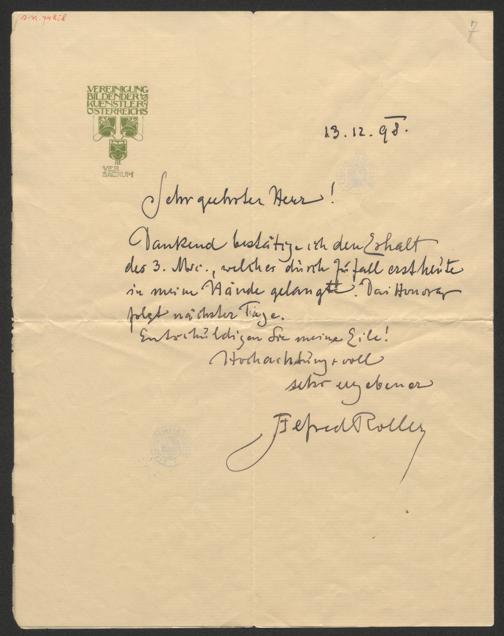 7
VEREINIGUNG
BILDENDER
KUENSTLER
ÖSTERREICHS
VER
SACRUM
13.12.98.
Sehr geehrter Herr!
Dankend bestätige ich den Erhalt
des 3. welches durch Zufall erst heute
in meine Hände gelangte. Das Honorar
folgt nächster Tage.
Entschuldigen Sie meine Eile!
Hochachtungsvoll
sehr ergebener
Alfred Roller